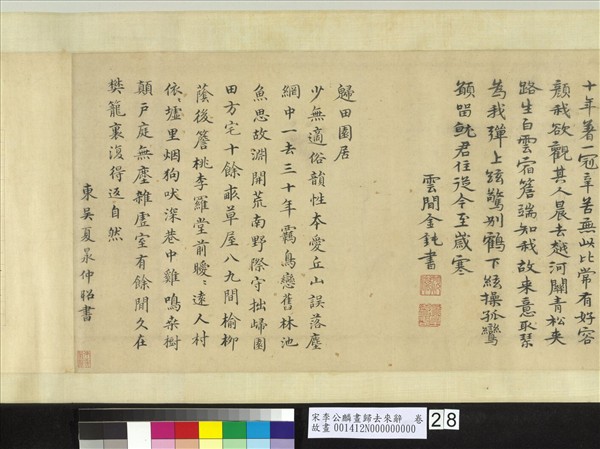 十年著一冠辛苦無此比常有好容
顏我欲觀其人晨去越河關青松夾
路生白雲宿簷端知我故来意取琴
為我彈上絃驚别鶴下絃操孤鸞
願留就君住從今至歲寒
雲間金鈍書
歸田園居
少無適俗韻性本愛丘山誤落塵
網中一去三十年羈鳥戀舊林池
魚思故淵開荒南野際守拙歸園
田方宅十餘畝草屋八九間榆柳
蔭後簷桃李羅堂前曖〻遠人村
依〻墟里烟狗吠深巷中雞鳴桑樹
顛戶庭無塵雜虛室有餘閒久在
樊籠裏復得返自然
東吳夏昺仲昭書
宋李公麟畫歸去來辭 卷
故畫 001412N000000000
28